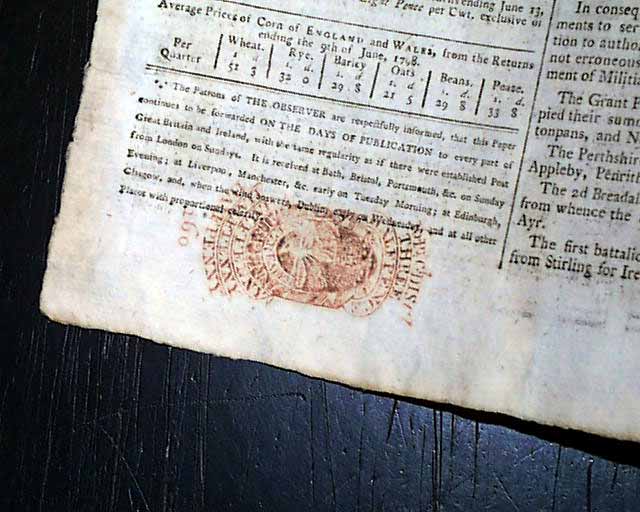 ending June 13,
Pence per Cwt. exclusive of
Average Prices of Corn of ENGLAND and WALES, from the Returns
ending the 9th of June, 1798.
Per Quarter
Wheat. Rye. Barley Oats Beans. Pease.
52 3 32 0 29 8 21 5 29 8 33 8
The Patrons of THE OBSERVER are respectfully informed, that this Paper
continues to be forwarded ON THE DAYS OF PUBLICATION to every part of
Great Britain and Ireland, with the same regularity as if there were established Post
from London on Sundays. It is received at Bath, Bristol, Portsmouth, &c. on Sunday
Evening; at Liverpool, Manchester, &c. early on Tuesday Morning; at Edinburgh,
Glasgow, and, when the wind answers, Dublin, on Wednesday, and at all other
Places with proportionate
In conseq
ments to ser
tion to autho
not erroneous
ment of Milit
The Grant
pied their sum
tonpans, and N
The Perthshir
Appleby, Penrith
The 2d Breada
from whence the
Ayr.
The first battalio
from Stirling for Ire